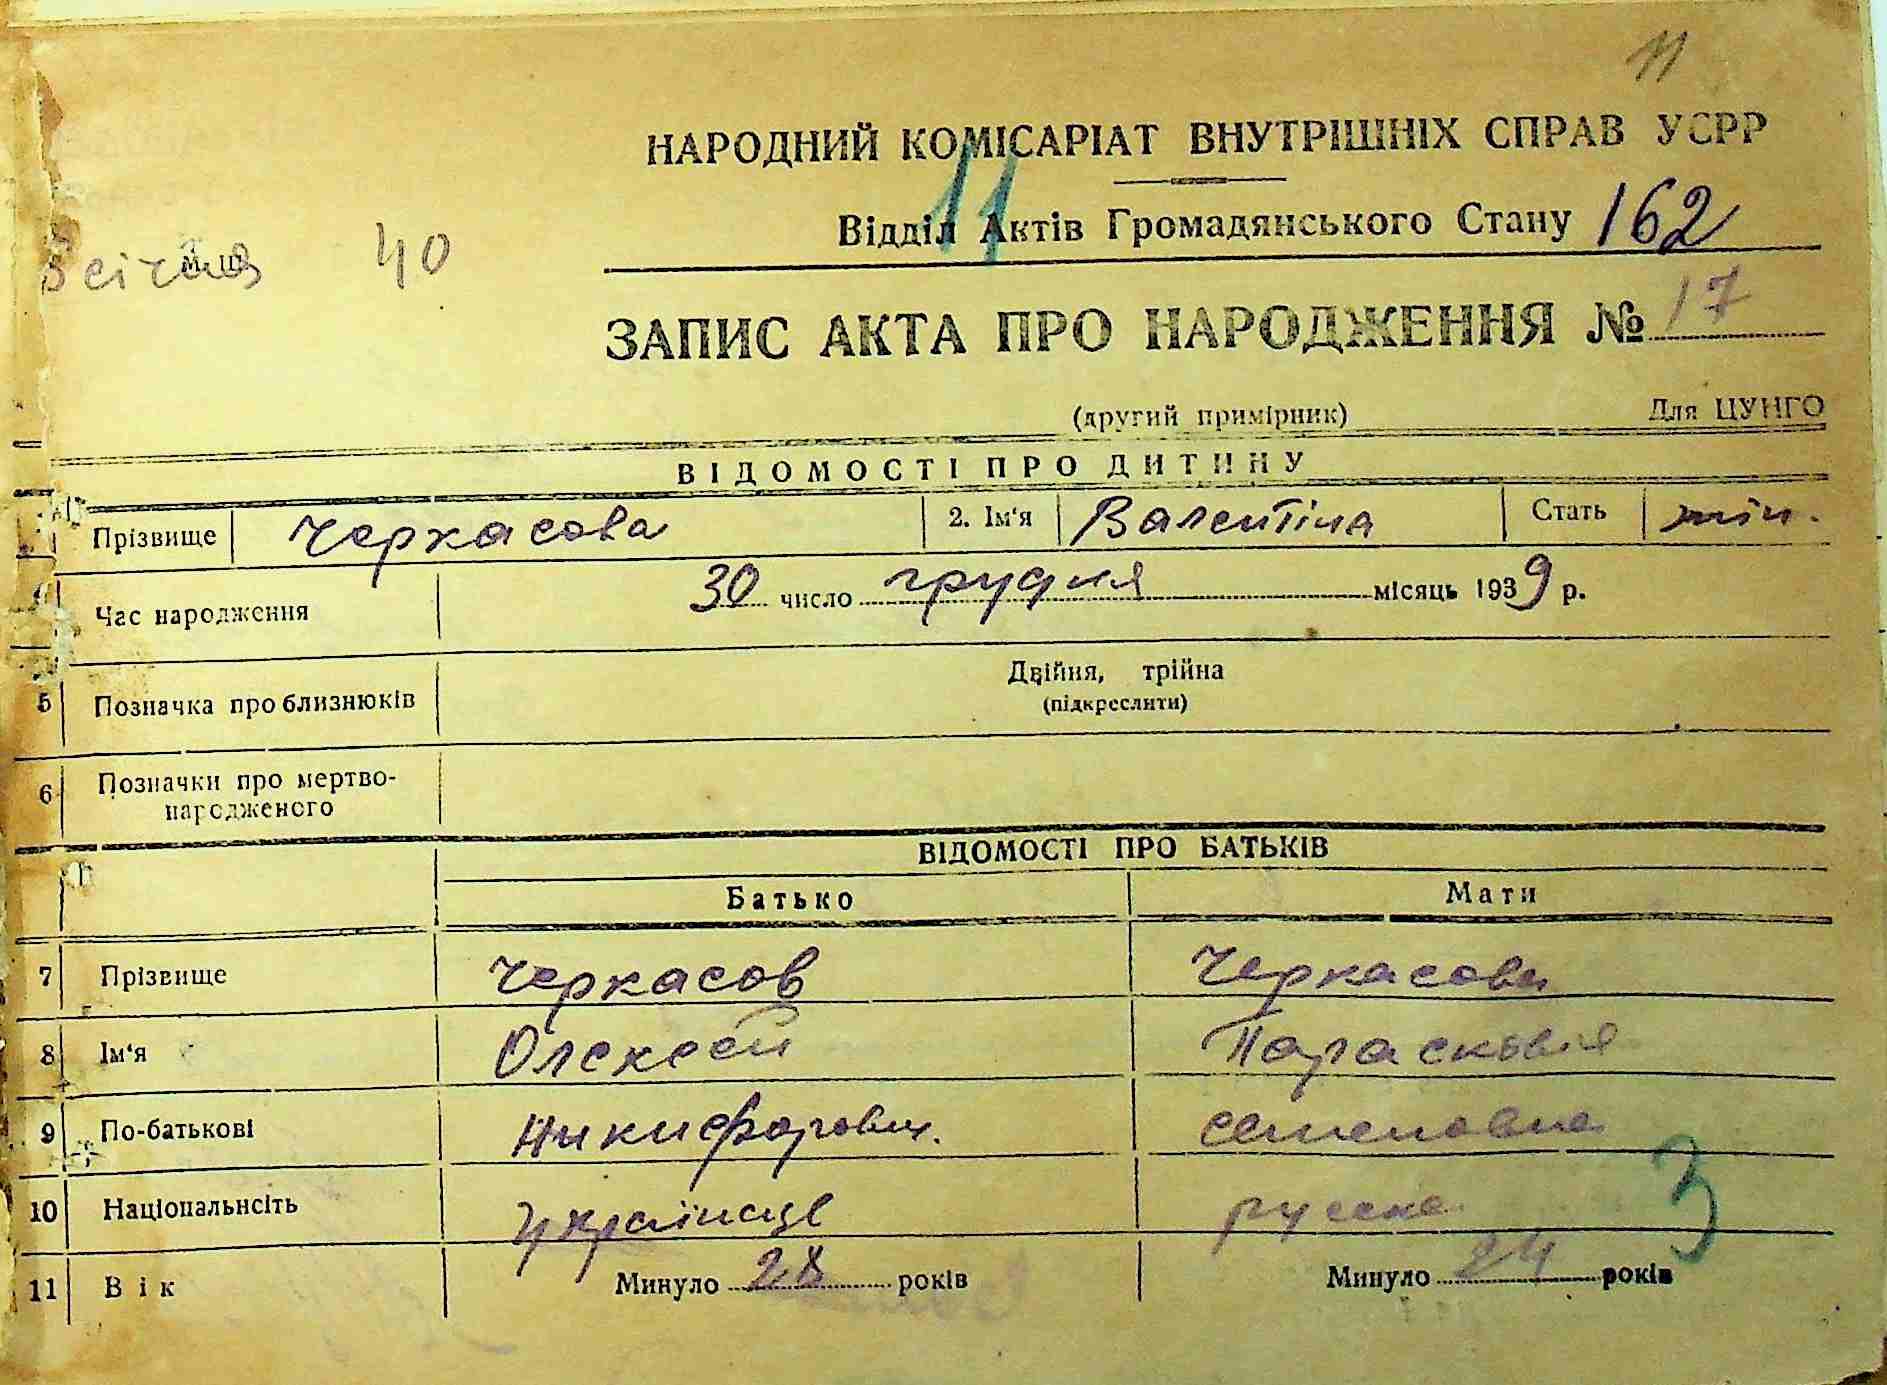 11
НАРОДНИЙ КОМІСАРІАТ ВНУТРІШНІХ СПРАВ УСРР
11
Відділ Актів Громадянського Стану 162
січня 40
ЗАПИС АКТА ПРО НАРОДЖЕННЯ № 17
(другий примірник) Для ЦУНГО
ВІДОМОСТІ ПРО ДИТИНУ
Прізвище Черкасова 2. Ім'я Валентіна Стать жін.
Час народження 30 число грудня місяць 1939 р.
5 Позначка про близнюків Двійня, трійна
(підкреслити)
6 Позначки про мертво-
народженого
ВІДОМОСТІ ПРО БАТЬКІВ
Батько Мати
7 Прізвище Черкасов Черкасова
8 Ім'я Олексей Парасковія
9 По-батькові Никифорович. Семеновна
10 Національнсіть українец руська 3
11 Вік Минуло 28 років Минуло 24 років